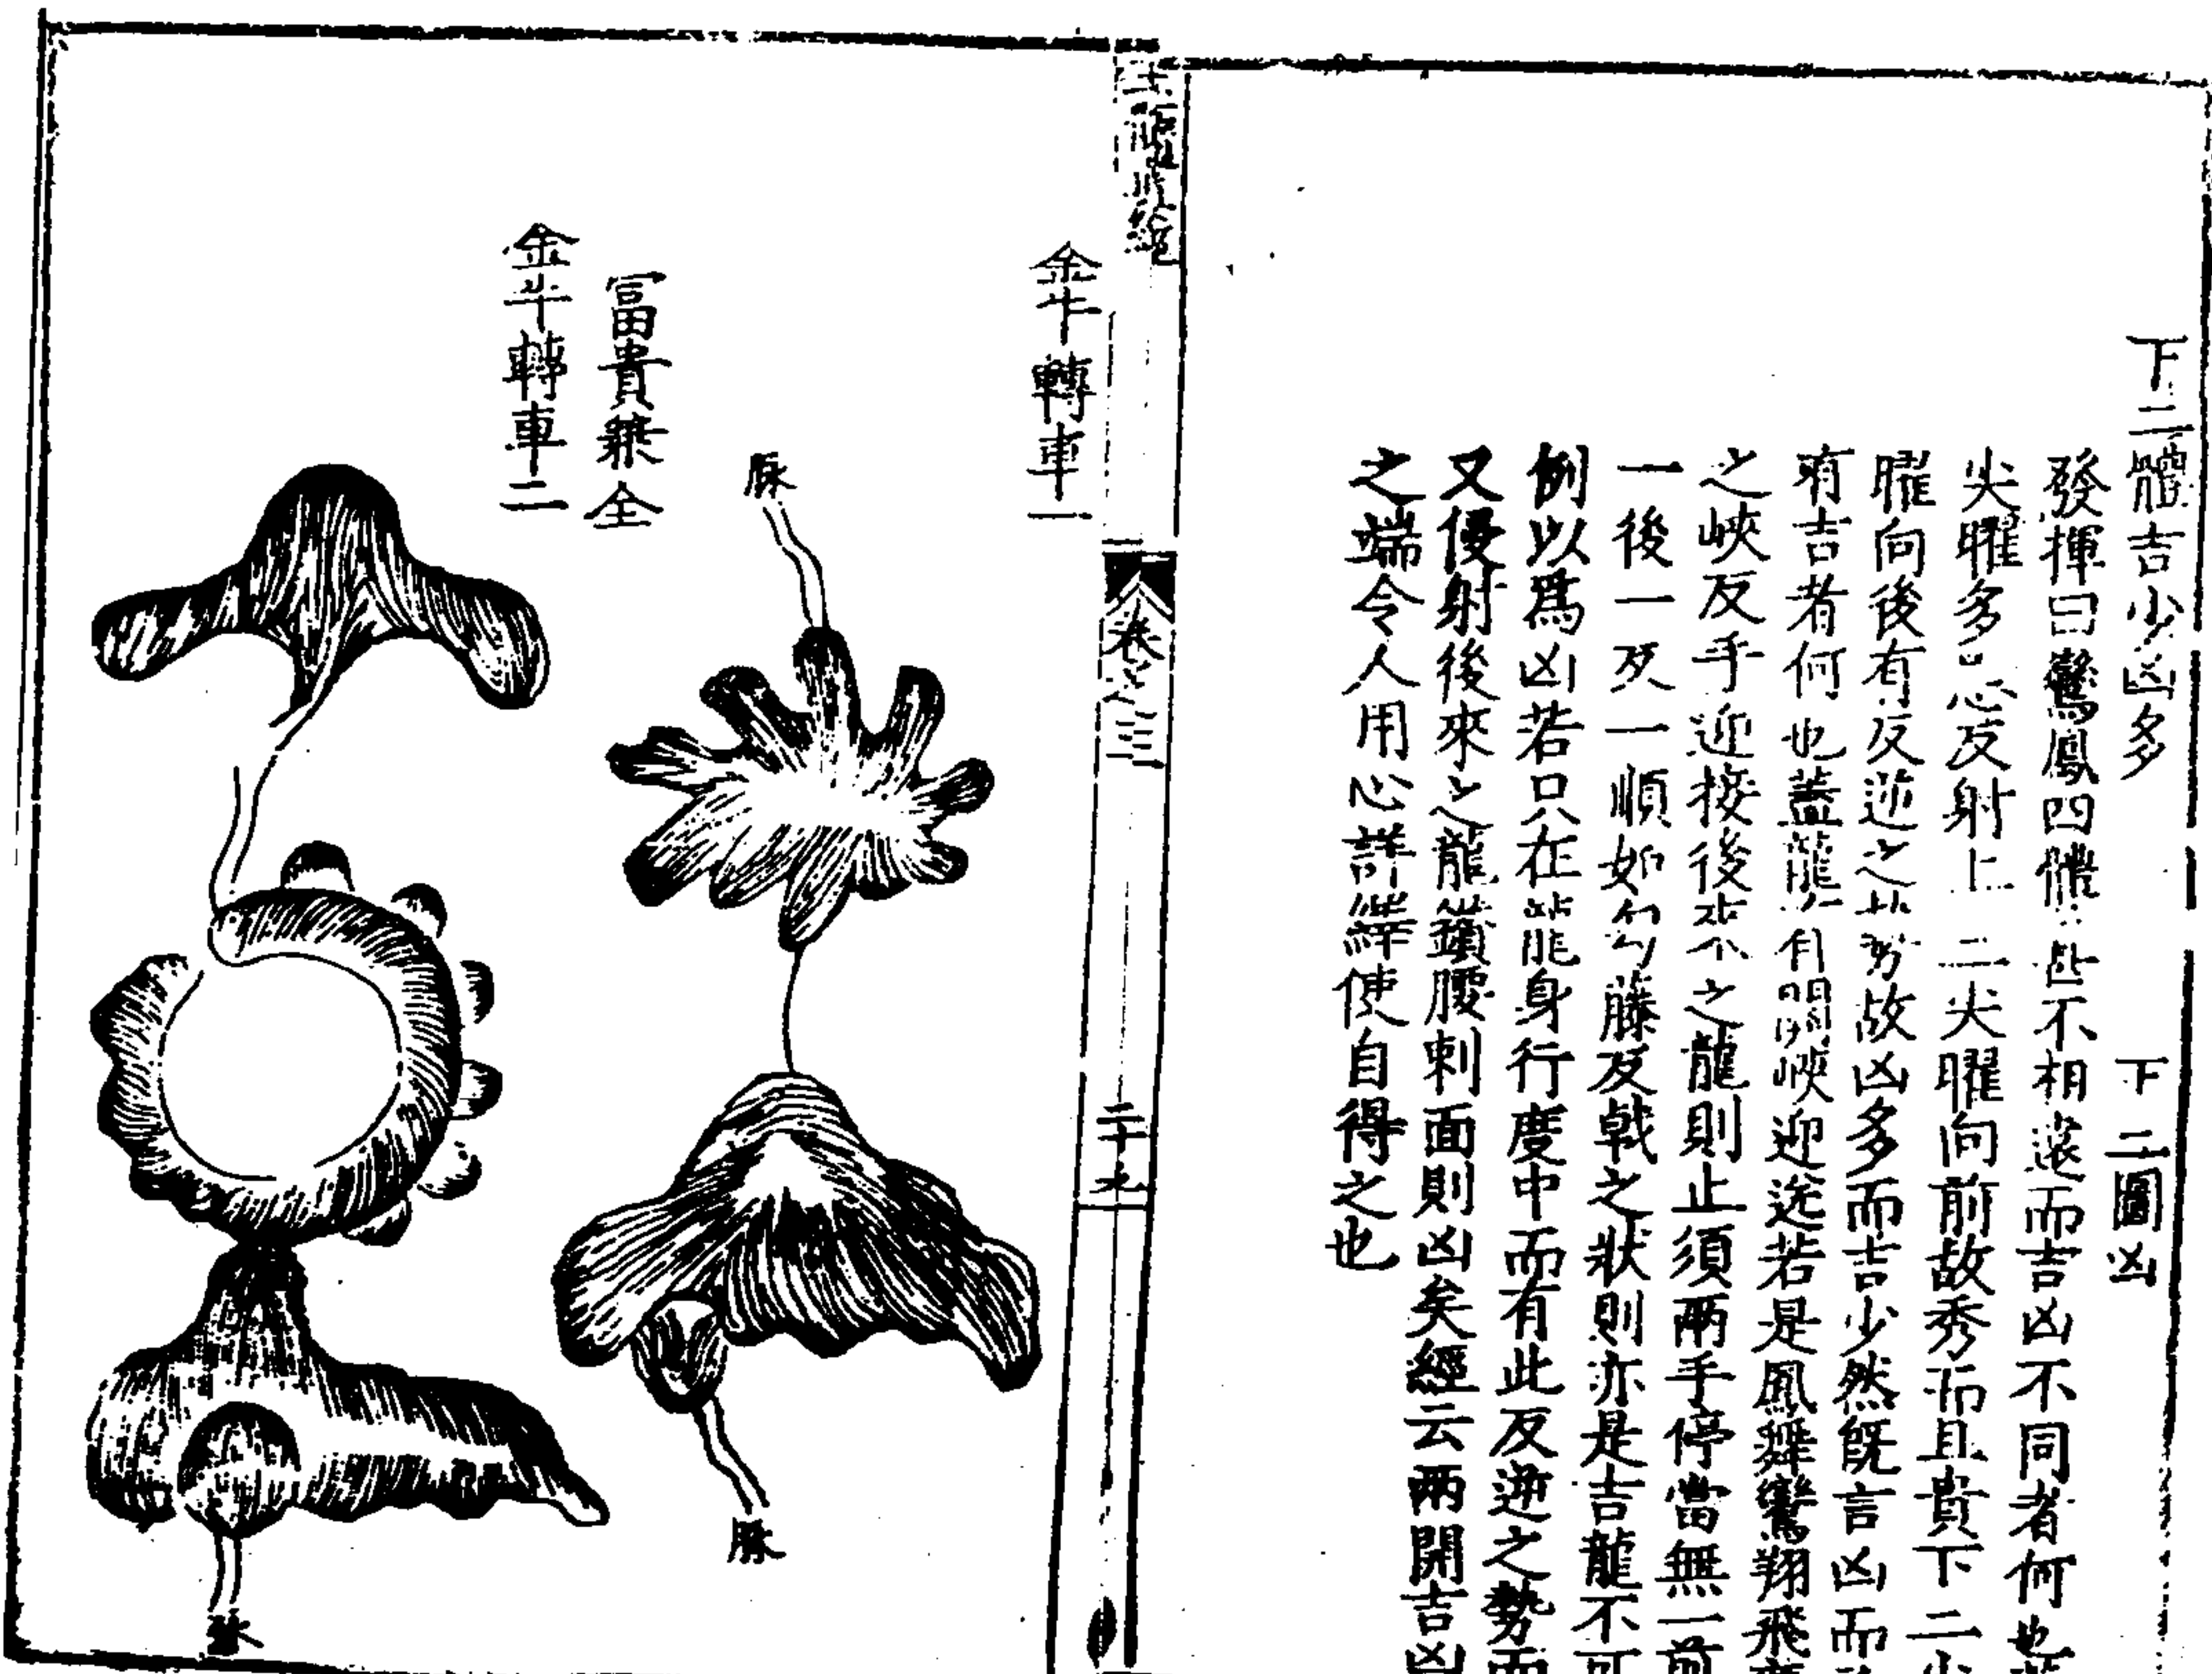 下二體吉少凶多　下二圖凶
發揮曰鸞鳳四體　甚不相遠而吉凶不同者何也
尖曜多　反射上二尖曜向前故秀而且貴下二
曜向後有反逆之　勢故凶多而吉少然旣言凶而
有吉者何也蓋龍　有開峽迎送若是鳳舞鸞翔飛
之峽反手迎接後來之龍則止須兩手停當無一前
一後一反一順如勾藤反戟之狀則亦是吉龍不可
例以爲凶若只在龍身行度中而有此反逆之勢而
又侵射後來之龍鎖腰刺面則凶矣經云兩開吉凶
之端令人用心詳繹使自得之也
卷之三
二十九
金牛轉車一
脉
脉
冨貴兼全
金牛轉車二
脉